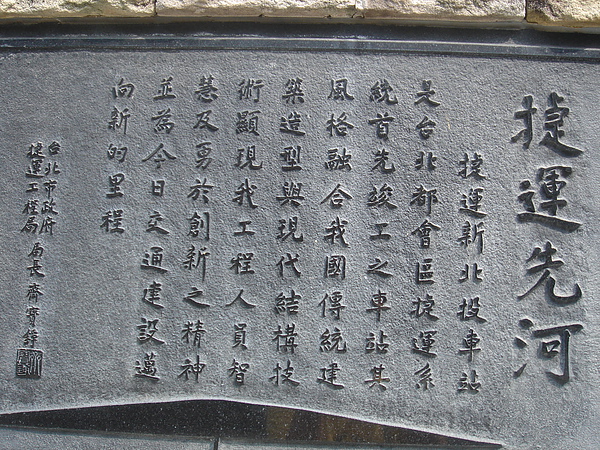 捷運先河
捷運新北投車站
是台北都會區捷運系
統首先竣工之車站其
風格融合我國傳統建
築造型與現代結構技
術顯現我工程人員智
慧及勇於創新之精神
並為今日交通建設邁
向新的里程
台北市政府
捷運工程局 局長 齊寶錚